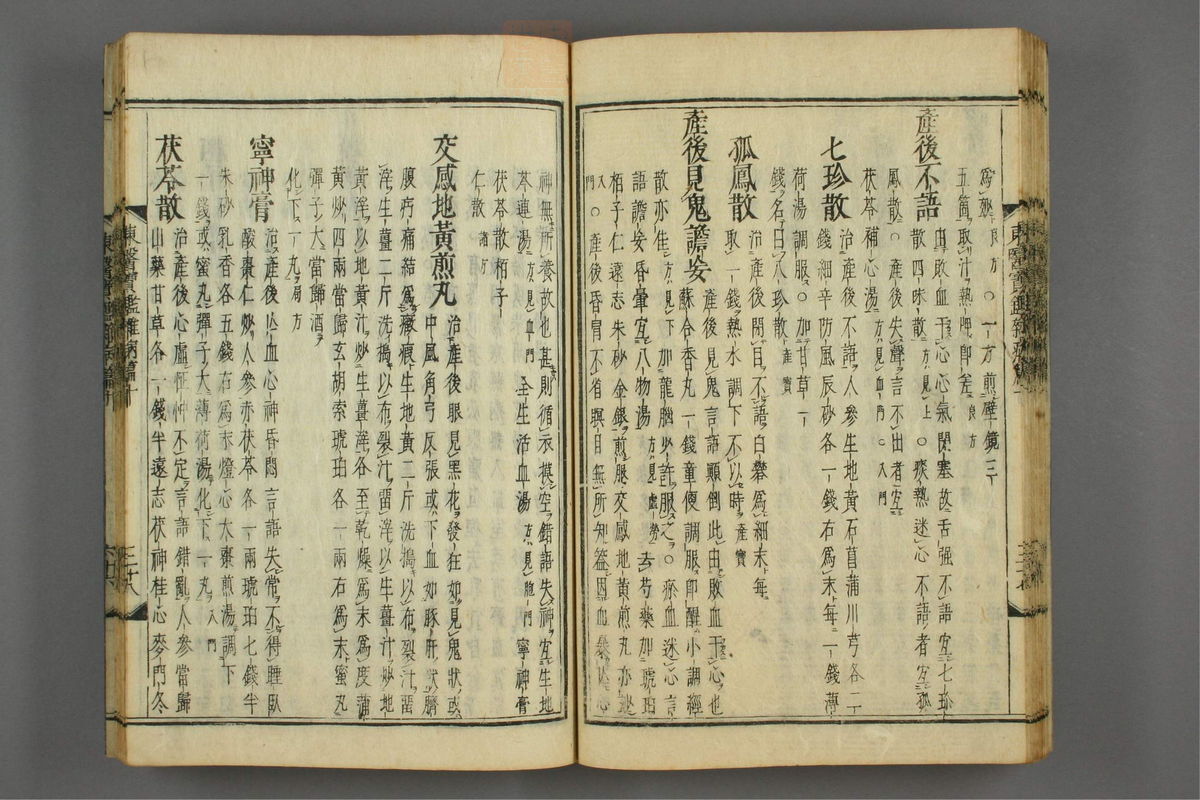 爲妙良方○一方煎壁鏡三
五箇取汁熱呷卽差良方
産後不語由敗血干心心氣閉塞故舌强不語宜七珍
散四味散方見上○痰熱迷心不語者宜孤
鳳散○産後失聲言不出者宜
茯苓補心湯方見血門○入門
七珍散治産後不語人參生地黃石菖蒲川芎各二
錢細辛防風辰砂各一錢右爲末每一錢薄
荷湯調服○加甘草一
錢名曰八珍散産寶
孤鳳散治産後閉目不語白礬爲細末每
取一錢熱水調下不以時産寶
産後見鬼譫妄産後見鬼言語顚倒此由敗血干心也
蘇合香丸一錢童便調服卽醒小調經
散亦佳方見下加龍腦少許服之○瘀血迷心言
語譫妄昏暈宜八物湯方見虛勞去芍藥加琥珀
栢子仁遠志朱砂金銀煎服交感地黃煎丸亦妙
入門○産後昏冒不省瞑目無所知盖因血暴亡心
神無所養故也甚則循衣摸空錯語失神宜生地
芩連湯方見血門全生活血湯方見胞門寧神膏
茯苓散栢子
仁散諸方
交感地黃煎丸治産後眼見黑花發狂如見鬼狀或
中風角弓反張或下血如豚肝狀臍
腹㽲痛結爲癥瘕生地黃二斤洗搗以布裂汁留
滓生薑二斤洗搗以布裂汁留滓以生薑汁炒地
黃滓以地黃汁炒生薑滓各至乾燥爲末爲度蒲
黃炒四兩當歸玄胡索琥珀各一兩右爲末蜜丸
彈子大當歸酒
化下一丸局方
寧神膏治産後亡血心神昏悶言語失常不得睡臥
酸棗仁炒人參赤茯苓各一兩琥珀七錢半
朱砂乳香各五錢右爲末燈心大棗煎湯調下
一錢或蜜丸彈子大薄荷湯化下一丸入門
茯苓散治産後心虛怔忡不定言語錯亂人參當歸
山藥甘草各一錢半遠志茯神桂心麥門冬
東醫寶鑑雜病篇十
三十八